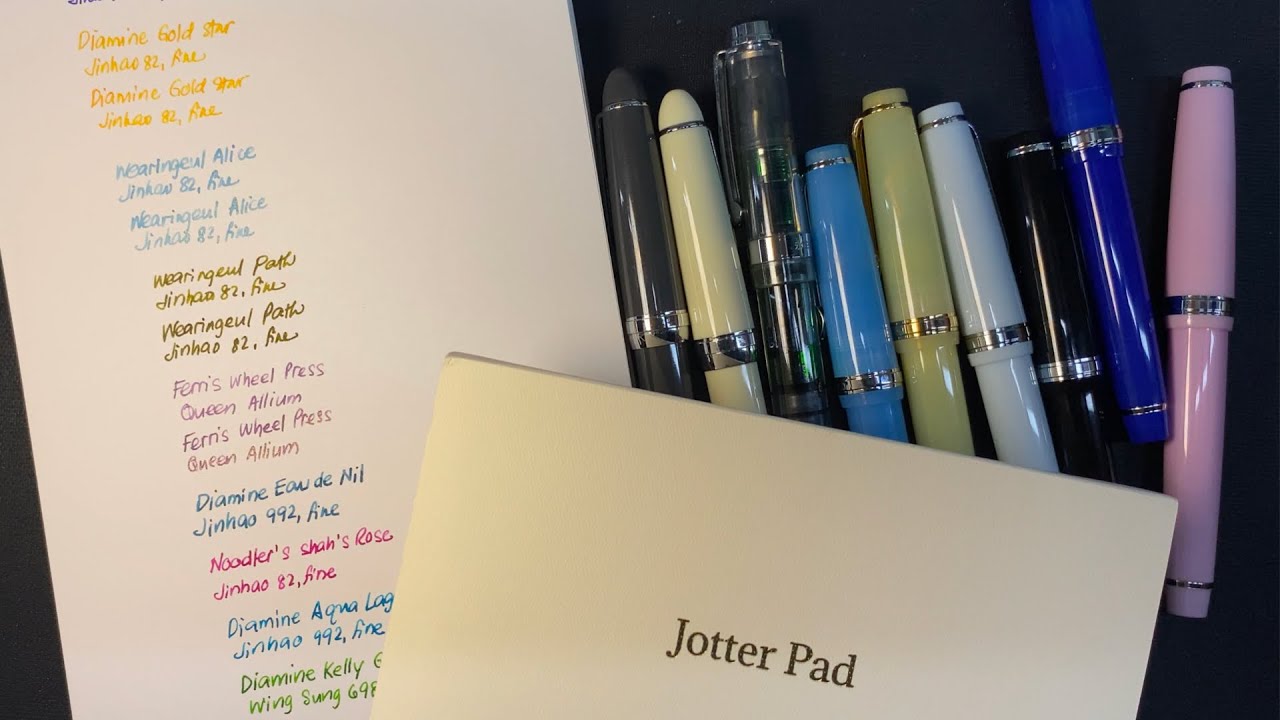 Diamine Gold Star
Jinhao 82, fine
Diamine Gold Star
Jinhao 82, fine
Wearingeul Alice
Jinhao 82, fine
Wearingeul Alice
Jinhao 82, fine
Wearingeul Path
Jinhao 82, fine
Wearingeul Path
Jinhao 82, fine
Ferris Wheel Press
Queen Allium
Ferris Wheel Press
Queen Allium
Diamine Eau de Nil
Jinhao 992, fine
Noodler's Shah's Rose
Jinhao 82, fine
Diamine Aqua Lag
Jinhao 992, fine
Diamine Kelly G
Wing Sung 698
Jotter Pad